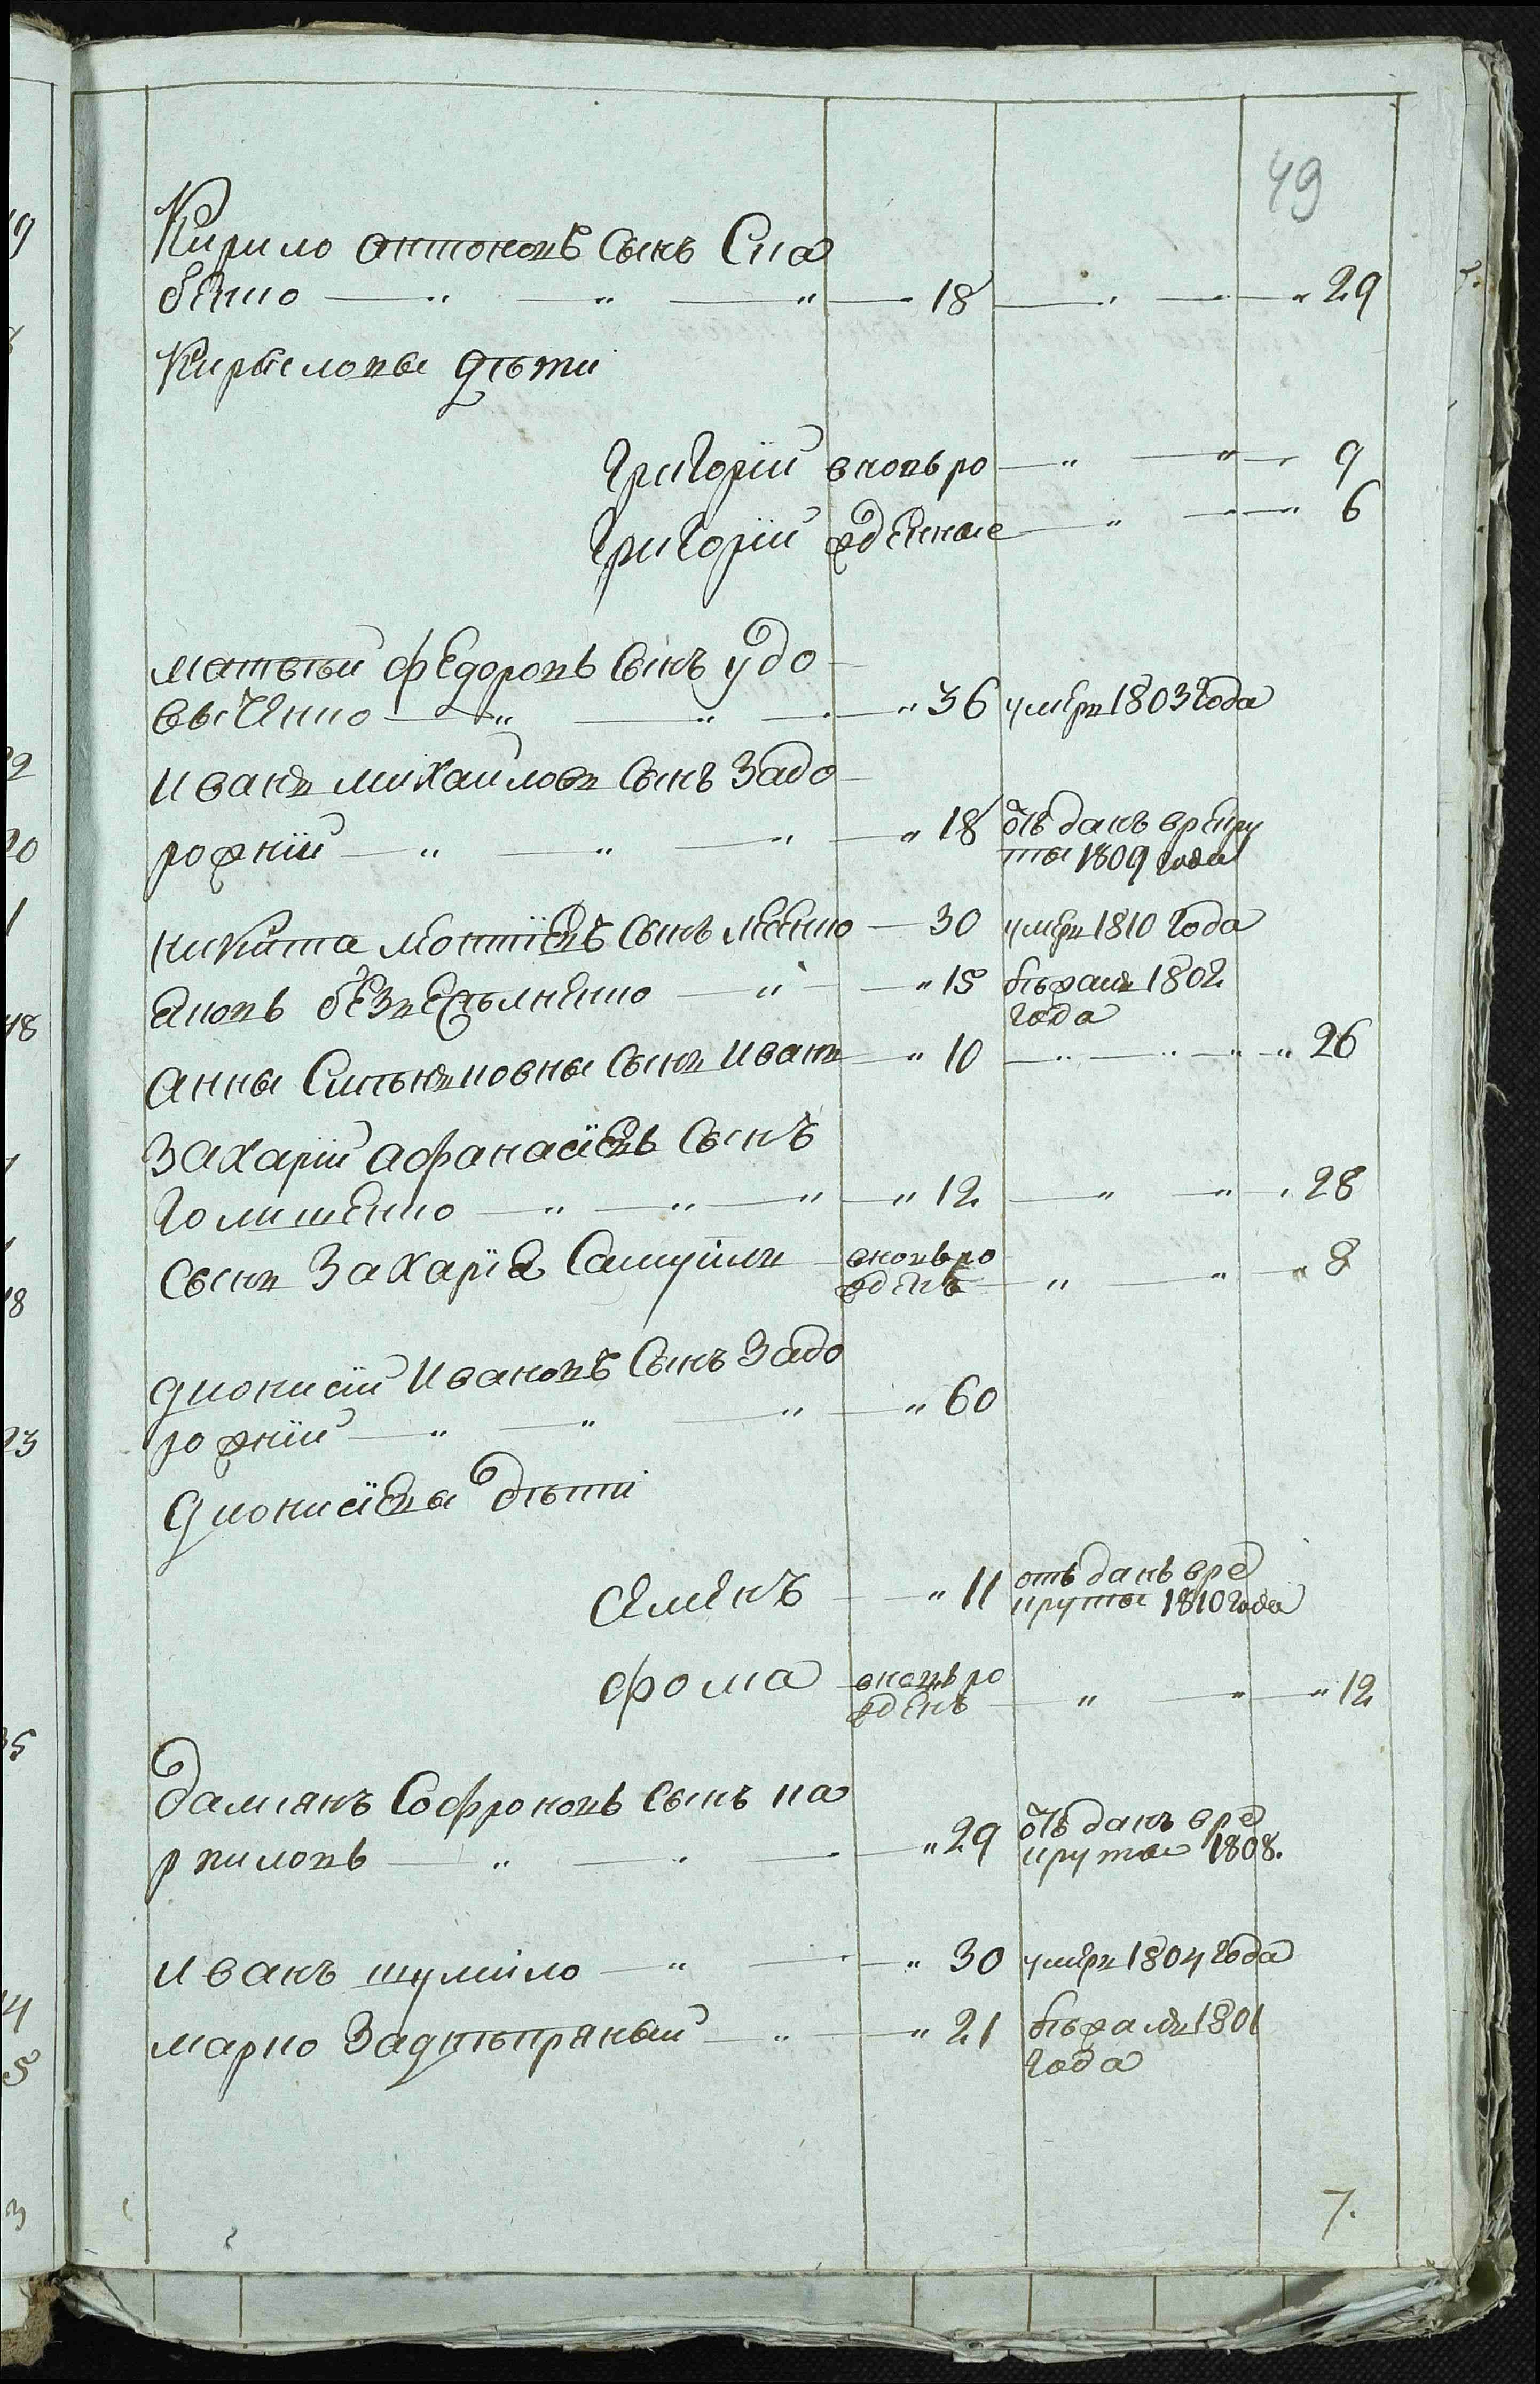 49
Кирило антоновъ Сынъ Сла
бѣнко — " — " — " — 18 — " — " 29
Кирыловы дѣти
Григорій вновь ро — " — " — 9
Григорій жденные — " — " 6
матвѣй федоровъ Сынъ удо
виченко — " — " — " 36 умерь 1803 года
Иванъ михайловъ Сынъ Задо
рожній — " — " — " — " 18 отъданъ врекру
ты 1809 года
никита моѵсіевъ Сынъ — 30 умерь 1810 года
яковъ — " — " 15 бѣжалъ 1802
года
анны Сынъ Иванъ — " 10 — " — " — " 26
Захарій афанасіевъ Сынъ
Голишенко — " — " — " — " 12 — " — " — " 28
Сынъ Захарія Самуйли вновь ро
жденъ — " — " — " 8
дионисій Ивановъ Сынъ Задо
рожній — " — " — " — " 60
дионисіевы дѣти
Семенъ — " 11 отъданъ вре
круты 1810 года
фома вновь ро
жденъ — " — " — " 12
даміянъ Софроновъ Сынъ на
рпиловъ — " — " — " 29 отъданъ вре
круты 1808.
Иванъ шумило — " — " — " 30 умерь 1804 года
марко Заднѣпряный — " — " 21 бѣжалъ 1801
года
7.